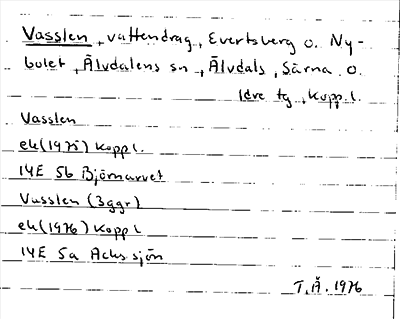 Vasslen, vattendrag, Evertsberg o. Ny-
bolet, Älvdalens sn, Älvdals, Särna o.
Idre tg, Kopp.l.
Vasslen
ek(1975) Kopp l.
14E 5b Björnarvet
Vasslen (3ggr)
ek(1976) Kopp l
14E 5a Achssjön
T.Å. 1976